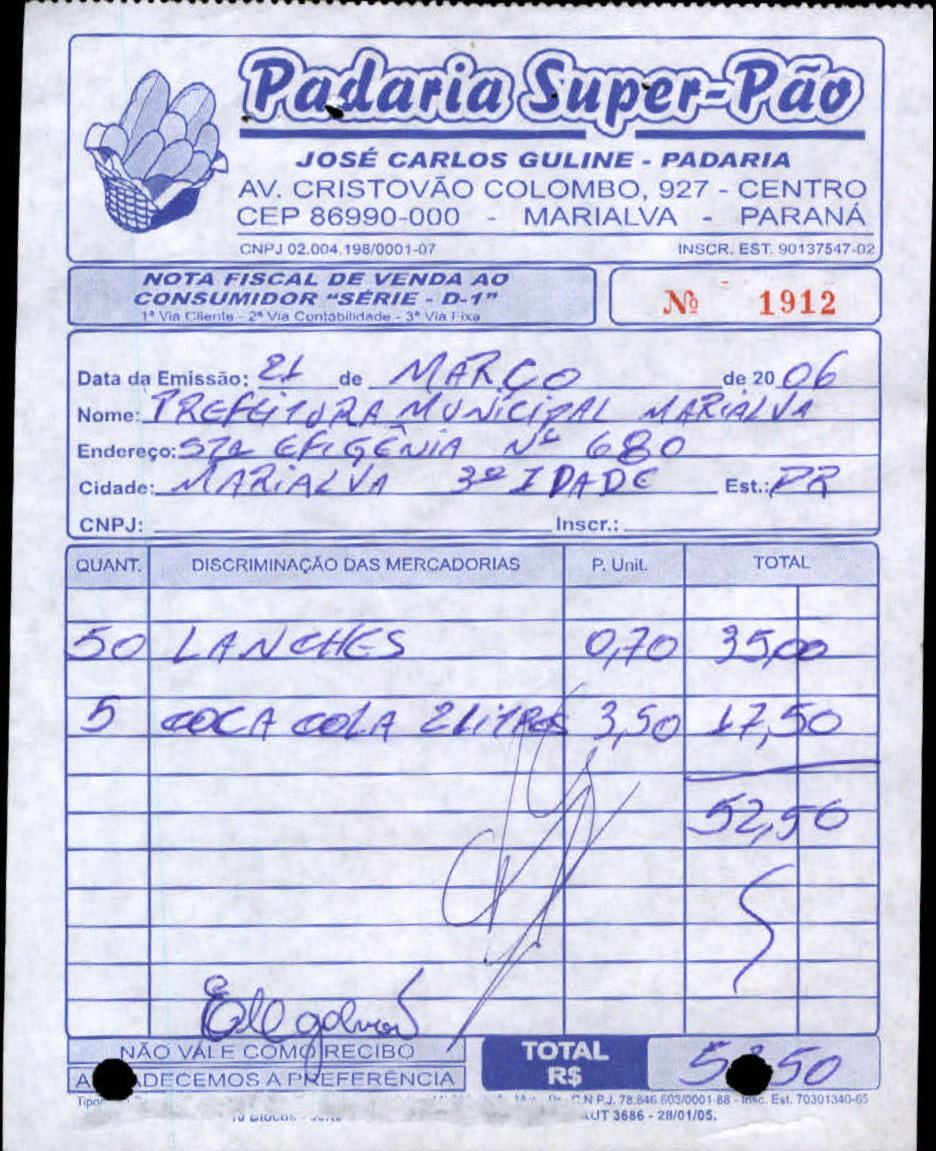 Padaria Super-Pão
JOSÉ CARLOS GULINE - PADARIA
AV. CRISTOVÃO COLOMBO, 927 - CENTRO
CEP 86990-000 - MARIALVA - PARANÁ
CNPJ 02.004.198/0001-07 INSCR. EST. 90137547-02
NOTA FISCAL DE VENDA AO
CONSUMIDOR "SÉRIE - D-1"
1ª Via Cliente - 2ª Via Contabilidade - 3ª Via Fixa
Nº 1912
Data da Emissão: 21 de MARÇO de 20 06
Nome: PREFEITURA MUNICIPAL MARIALVA
Endereço: STA EFIGÊNIA Nº 680
Cidade: MARIALVA 3ª IDADE Est.: PR
CNPJ: Inscr.:
QUANT. DISCRIMINAÇÃO DAS MERCADORIAS P. Unit. TOTAL
50 LANCHES 0,70 35,00
5 COCA COLA 2 LITROS 3,50 17,50
52,50
NÃO VALE COMO RECIBO
DECEMOS A PREFERÊNCIA
TOTAL
R$
50
C.N.P.J. 78.846.603/0001-88 - Insc. Est. 70301340-65
AUT 3686 - 28/01/05.